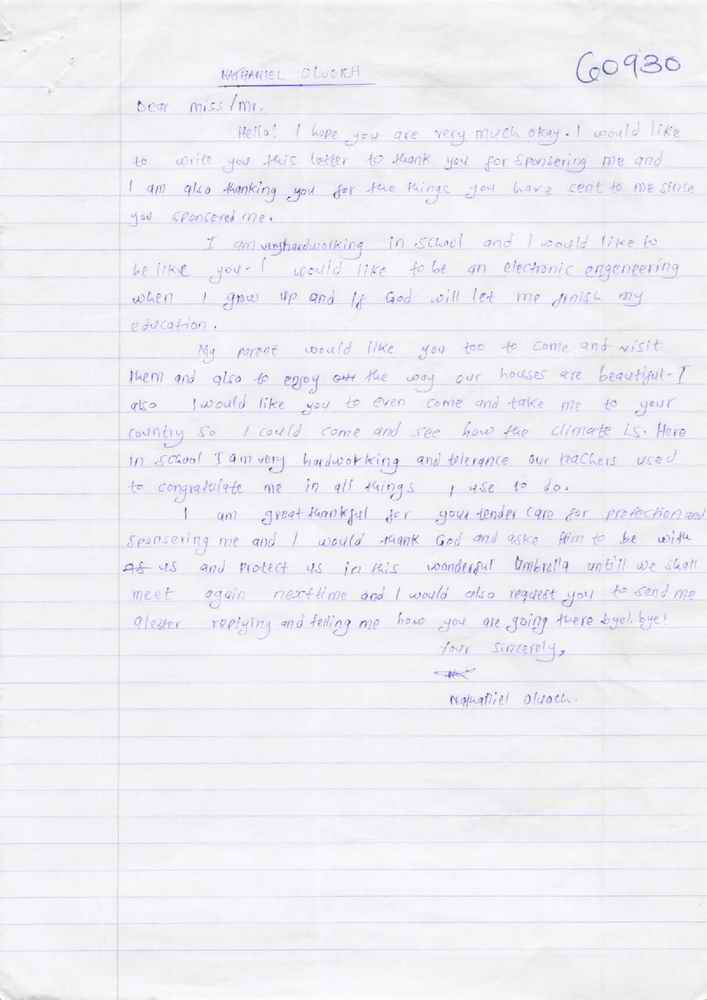 NATHANIEL OLUOKH
G0930
Dear miss/mr.
Hello! I hope you are very much okay. I would like
to write you this letter to thank you for sponsering me and
I am also thanking you for the things you have sent to me since
you sponsered me.
I am very hardworking in school and I would like to
be like you. I would like to be an electronic engeneering
when I grow up and if God will let me finish my
education.
My parent would like you too to come and visit
them and also to enjoy the way our houses are beautiful. I
also I would like you to even come and take me to your
country so I could come and see how the climate is. Here
in school I am very hardworking and tolerance our teachers used
to congratulate me in all things I use to do.
I am great thankful for your tender care for protection and
sponsering me and I would thank God and aske Him to be with
us and protect us in this wonderful Umbrella untill we shall
meet again nexttime and I would also request you to send me
aletter replying and telling me how you are going there bye! bye!
Your Sincerely,
Nathaniel Oluoch.